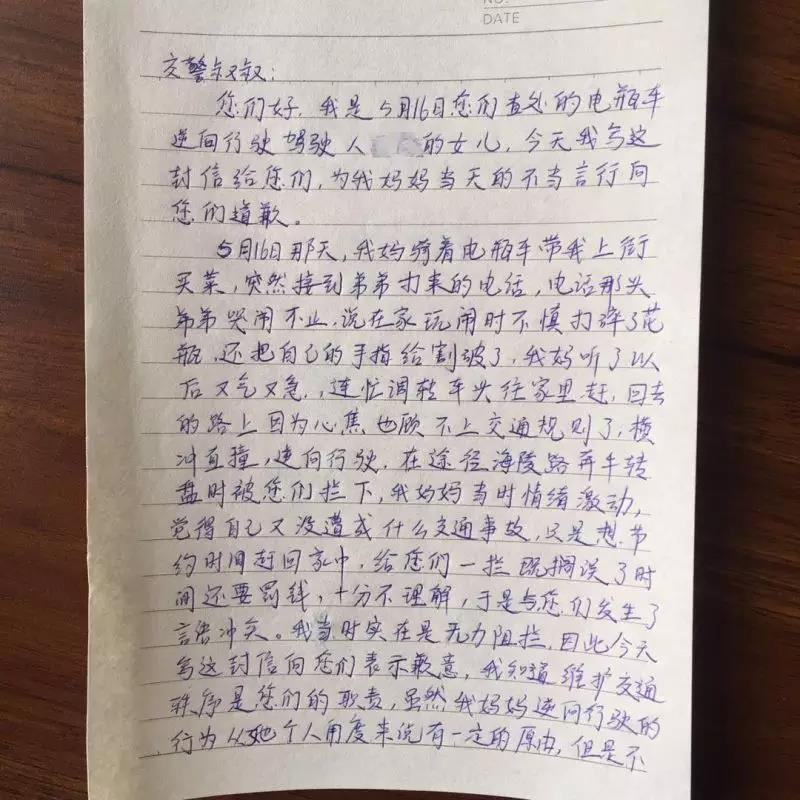 NO.
DATE
交警叔叔:
您们好,我是5月16日您们查处的电瓶车
逆向行驶驾驶人的女儿,今天我写这
封信给您们,为我妈妈当天的不当言行向
您们道歉。
5月16日那天,我妈骑着电瓶车带我上街
买菜,突然接到弟弟打来的电话,电话那头
弟弟哭闹不止,说在家玩闹时不慎打碎了花
瓶,还把自己的手指给割破了,我妈听了以
后又气又急,连忙调转车头往家里赶,回去
的路上因为心焦也顾不上交通规则了,横
冲直撞,逆向行驶,在途径海陵路奔牛转
盘时被您们拦下,我妈妈当时情绪激动,
觉得自己又没造成什么交通事故,只是想节
约时间赶回家中,给您们一拦既搁误了时
间还要罚钱,十分不理解,于是与您们发生了
言语冲突。我当时实在是无力阻拦,因此今天
写这封信向您们表示歉意,我知道维护交通
秩序是您们的职责,虽然我妈妈逆向行驶的
行为从她个人角度来说有一定的原由,但是不